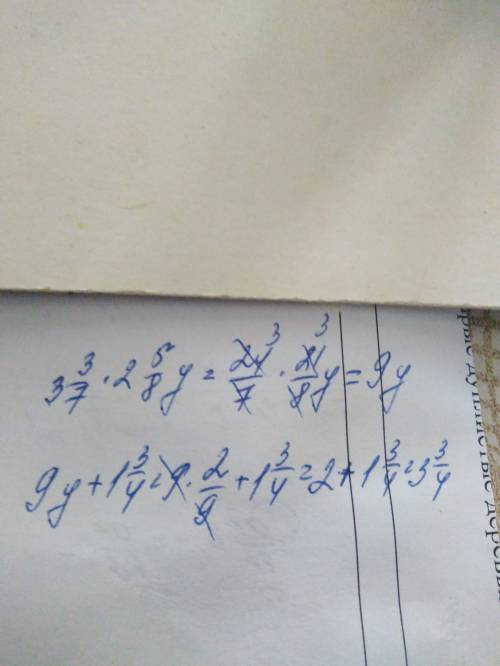 3 3/7 · 2 5/8 y = 24/7 3 · 21/8 3 y = 9y
9y + 1 3/4 = 9 · 2/9 + 1 3/4 = 2 + 1 3/4 = 3 3/4
дуплистые деревья